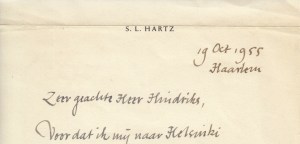 S. L. HARTZ
19 Oct 1955
Haarlem
Zeer geachte Heer Hindriks,
Voor dat ik mij naar Helsinki